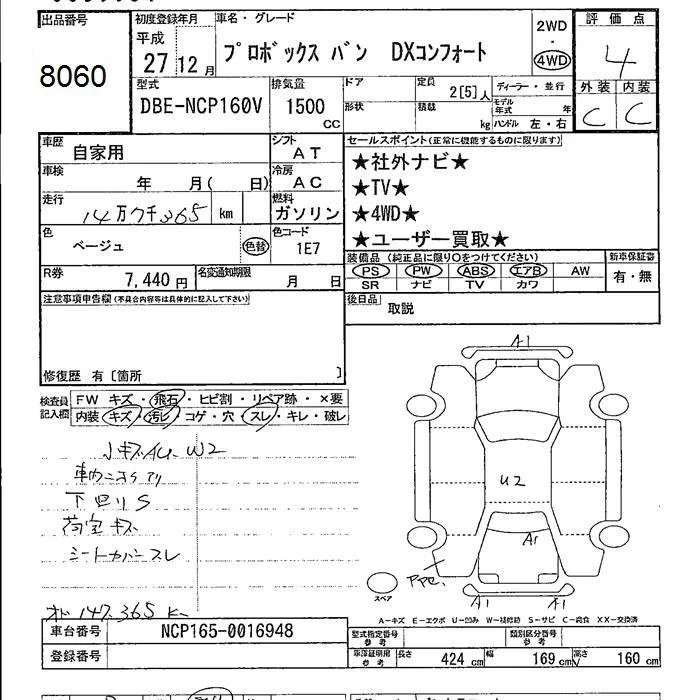 出品番号
8060
初度登録年月
平成
27 12月
車名・グレード
プロボックス バン DXコンフォート
2WD
・
4WD
評価点
4
外装 内装
C C
型式
DBE-NCP160V
排気量
1500
cc
ドア
形状
定員
2[5]人
積載
kg
ディーラー・並行
モデル
年式 年
ハンドル 左・右
車歴
自家用
シフト
AT
車検
年 月( 日)
冷房
AC
走行
14万7千365 km
燃料
ガソリン
色
ベージュ
色替
色コード
1E7
R券
7,440円
名変通知期限
月 日
セールスポイント(正常に機能するものに限ります)
★社外ナビ★
★TV★
★4WD★
★ユーザー買取★
装備品(純正品に限り○をつけてください)
PS PW ABS エアB AW
SR ナビ TV カワ
新車保証書
有・無
後日品
取説
注意事項申告欄(不具合内容等は具体的に記入して下さい)
修復歴 有〔箇所 〕
検査員
記入欄
FW キズ・飛石・ヒビ割・リペア跡・×要
内装 キズ・汚レ・コゲ・穴・スレ・キレ・破レ
小キズAU、W2
下回りS
荷室キズ
シートカバースレ
147,365 K
A1
U2
A1
A1 A1
スペア
A-キズ E-エクボ U-凹み W-補修跡 S-サビ C-腐食 XX-交換済
車台番号
NCP165-0016948
登録番号
型式指定番号
参考
類別区分番号
参考
車庫証明用
参考
長さ 424 cm
幅 169 cm
高さ 160 cm